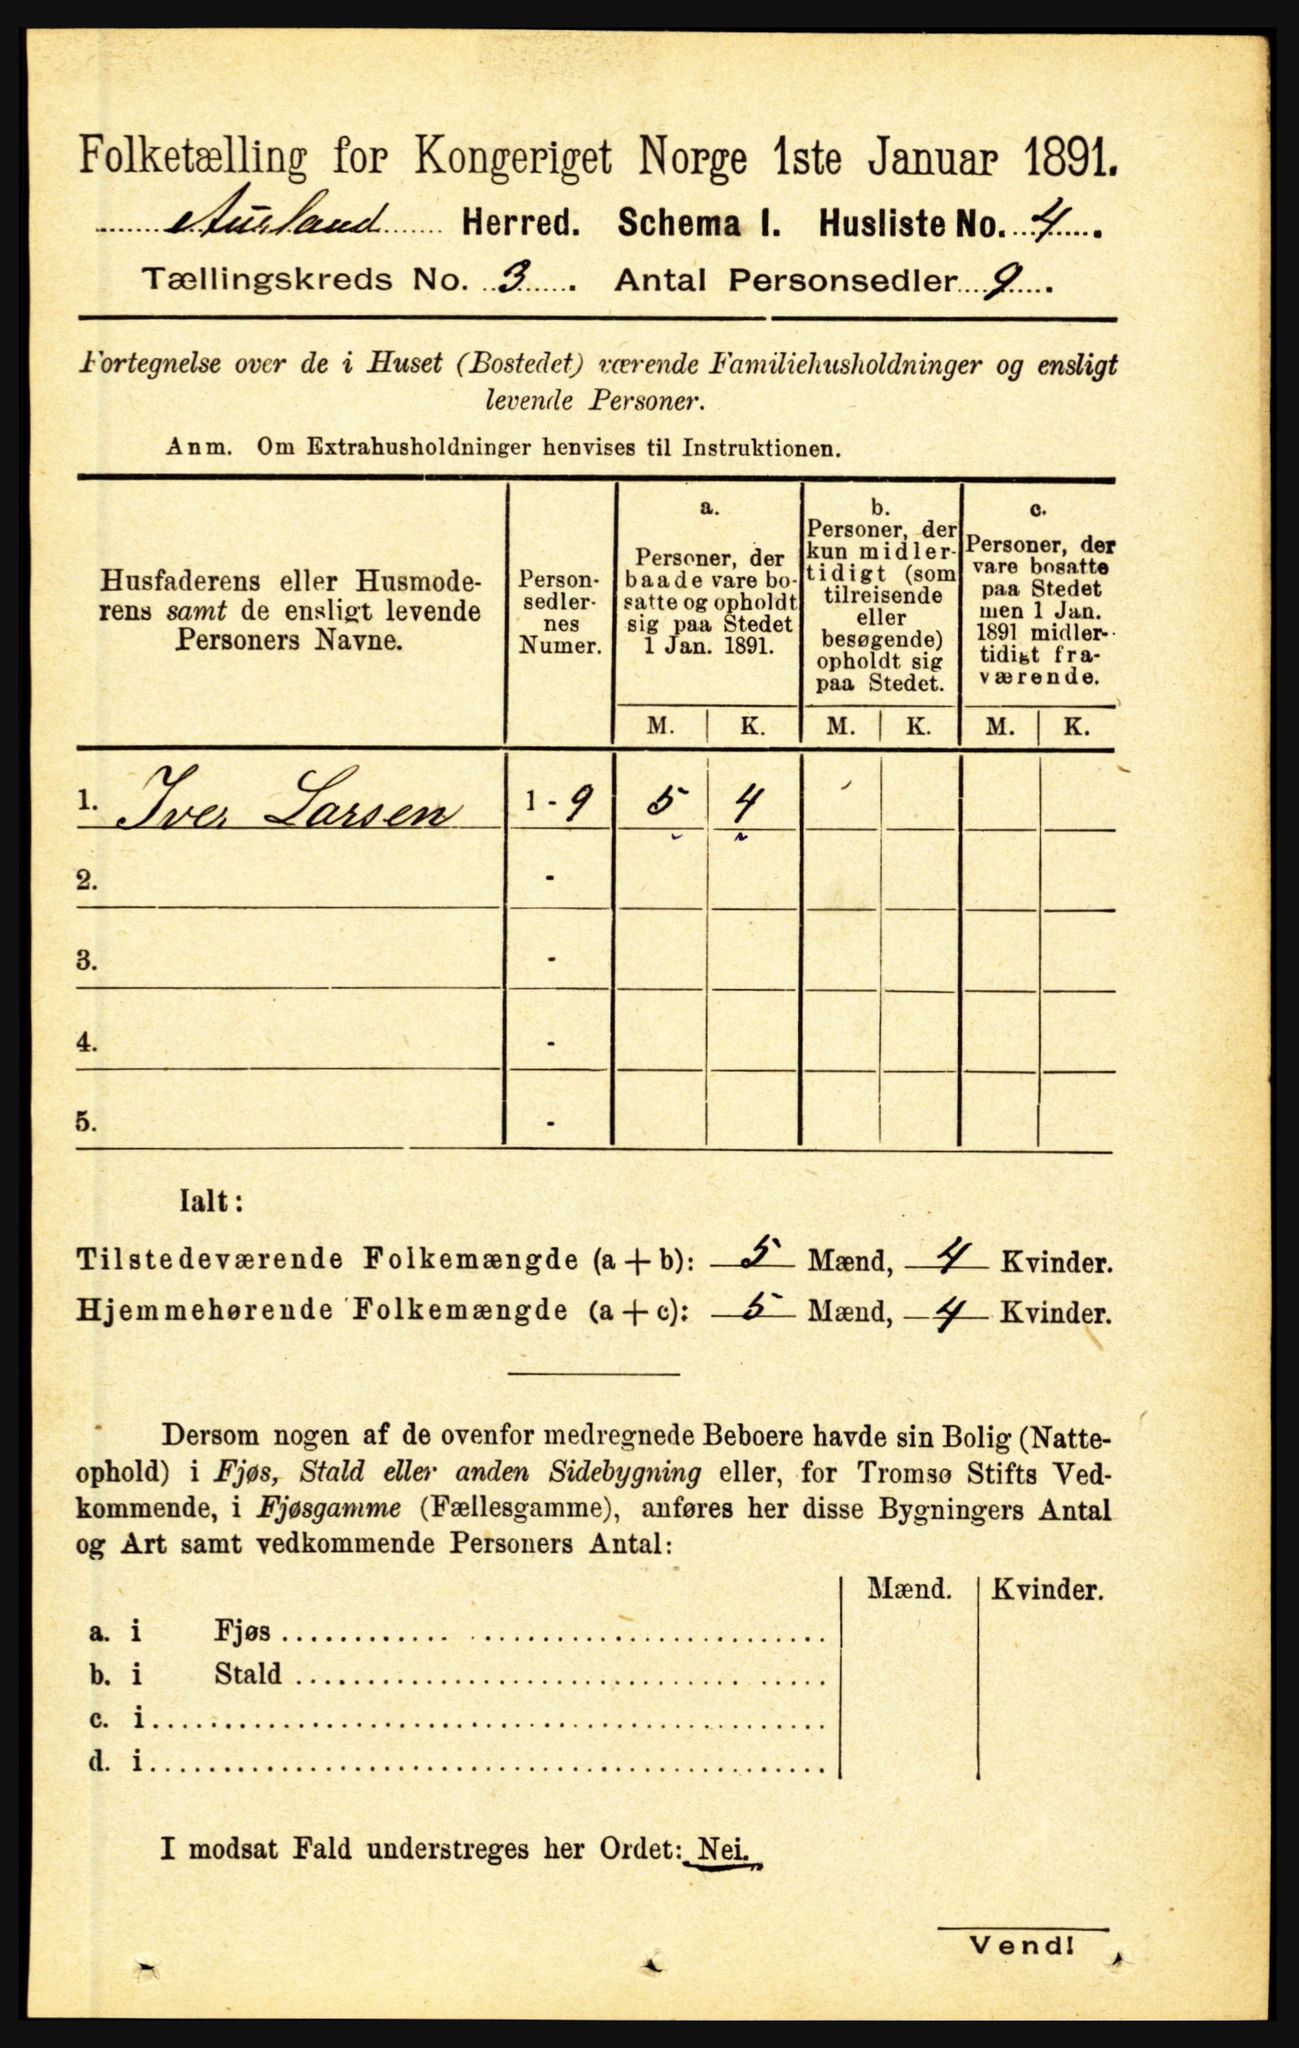 Folketælling for Kongeriget Norge 1ste Januar 1891.
Aurland Herred. Schema I. Husliste No. 4.
Tællingskreds No. 3. Antal Personsedler 9.
Fortegnelse over de i Huset (Bostedet) værende Familiehusholdninger og ensligt
levende Personer.
Anm. Om Extrahusholdninger henvises til Instruktionen.
Husfaderens eller Husmode-
rens samt de ensligt levende
Personers Navne.
Person-
sedler-
nes
Numer.
a.
Personer, der
baade vare bo-
satte og opholdt
sig paa Stedet
1 Jan. 1891.
b.
Personer, der
kun midler-
tidigt (som
tilreisende
eller
besøgende)
opholdt sig
paa Stedet.
c.
Personer, der
vare bosatte
paa Stedet
men 1 Jan.
1891 midler-
tidigt fra-
værende.
M. K. M. K. M. K.
1. Iver Larsen 1 - 9 5 4
2. -
3. -
4. -
5. -
Ialt:
Tilstedeværende Folkemængde (a + b): 5 Mænd, 4 Kvinder.
Hjemmehørende Folkemængde (a + c): 5 Mænd, 4 Kvinder.
Dersom nogen af de ovenfor medregnede Beboere havde sin Bolig (Natte-
ophold) i Fjøs, Stald eller anden Sidebygning eller, for Tromsø Stifts Ved-
kommende, i Fjøsgamme (Fællesgamme), anføres her disse Bygningers Antal
og Art samt vedkommende Personers Antal:
Mænd. Kvinder.
a. i Fjøs
b. i Stald
c. i
d. i
I modsat Fald understreges her Ordet: Nei.
Vend!